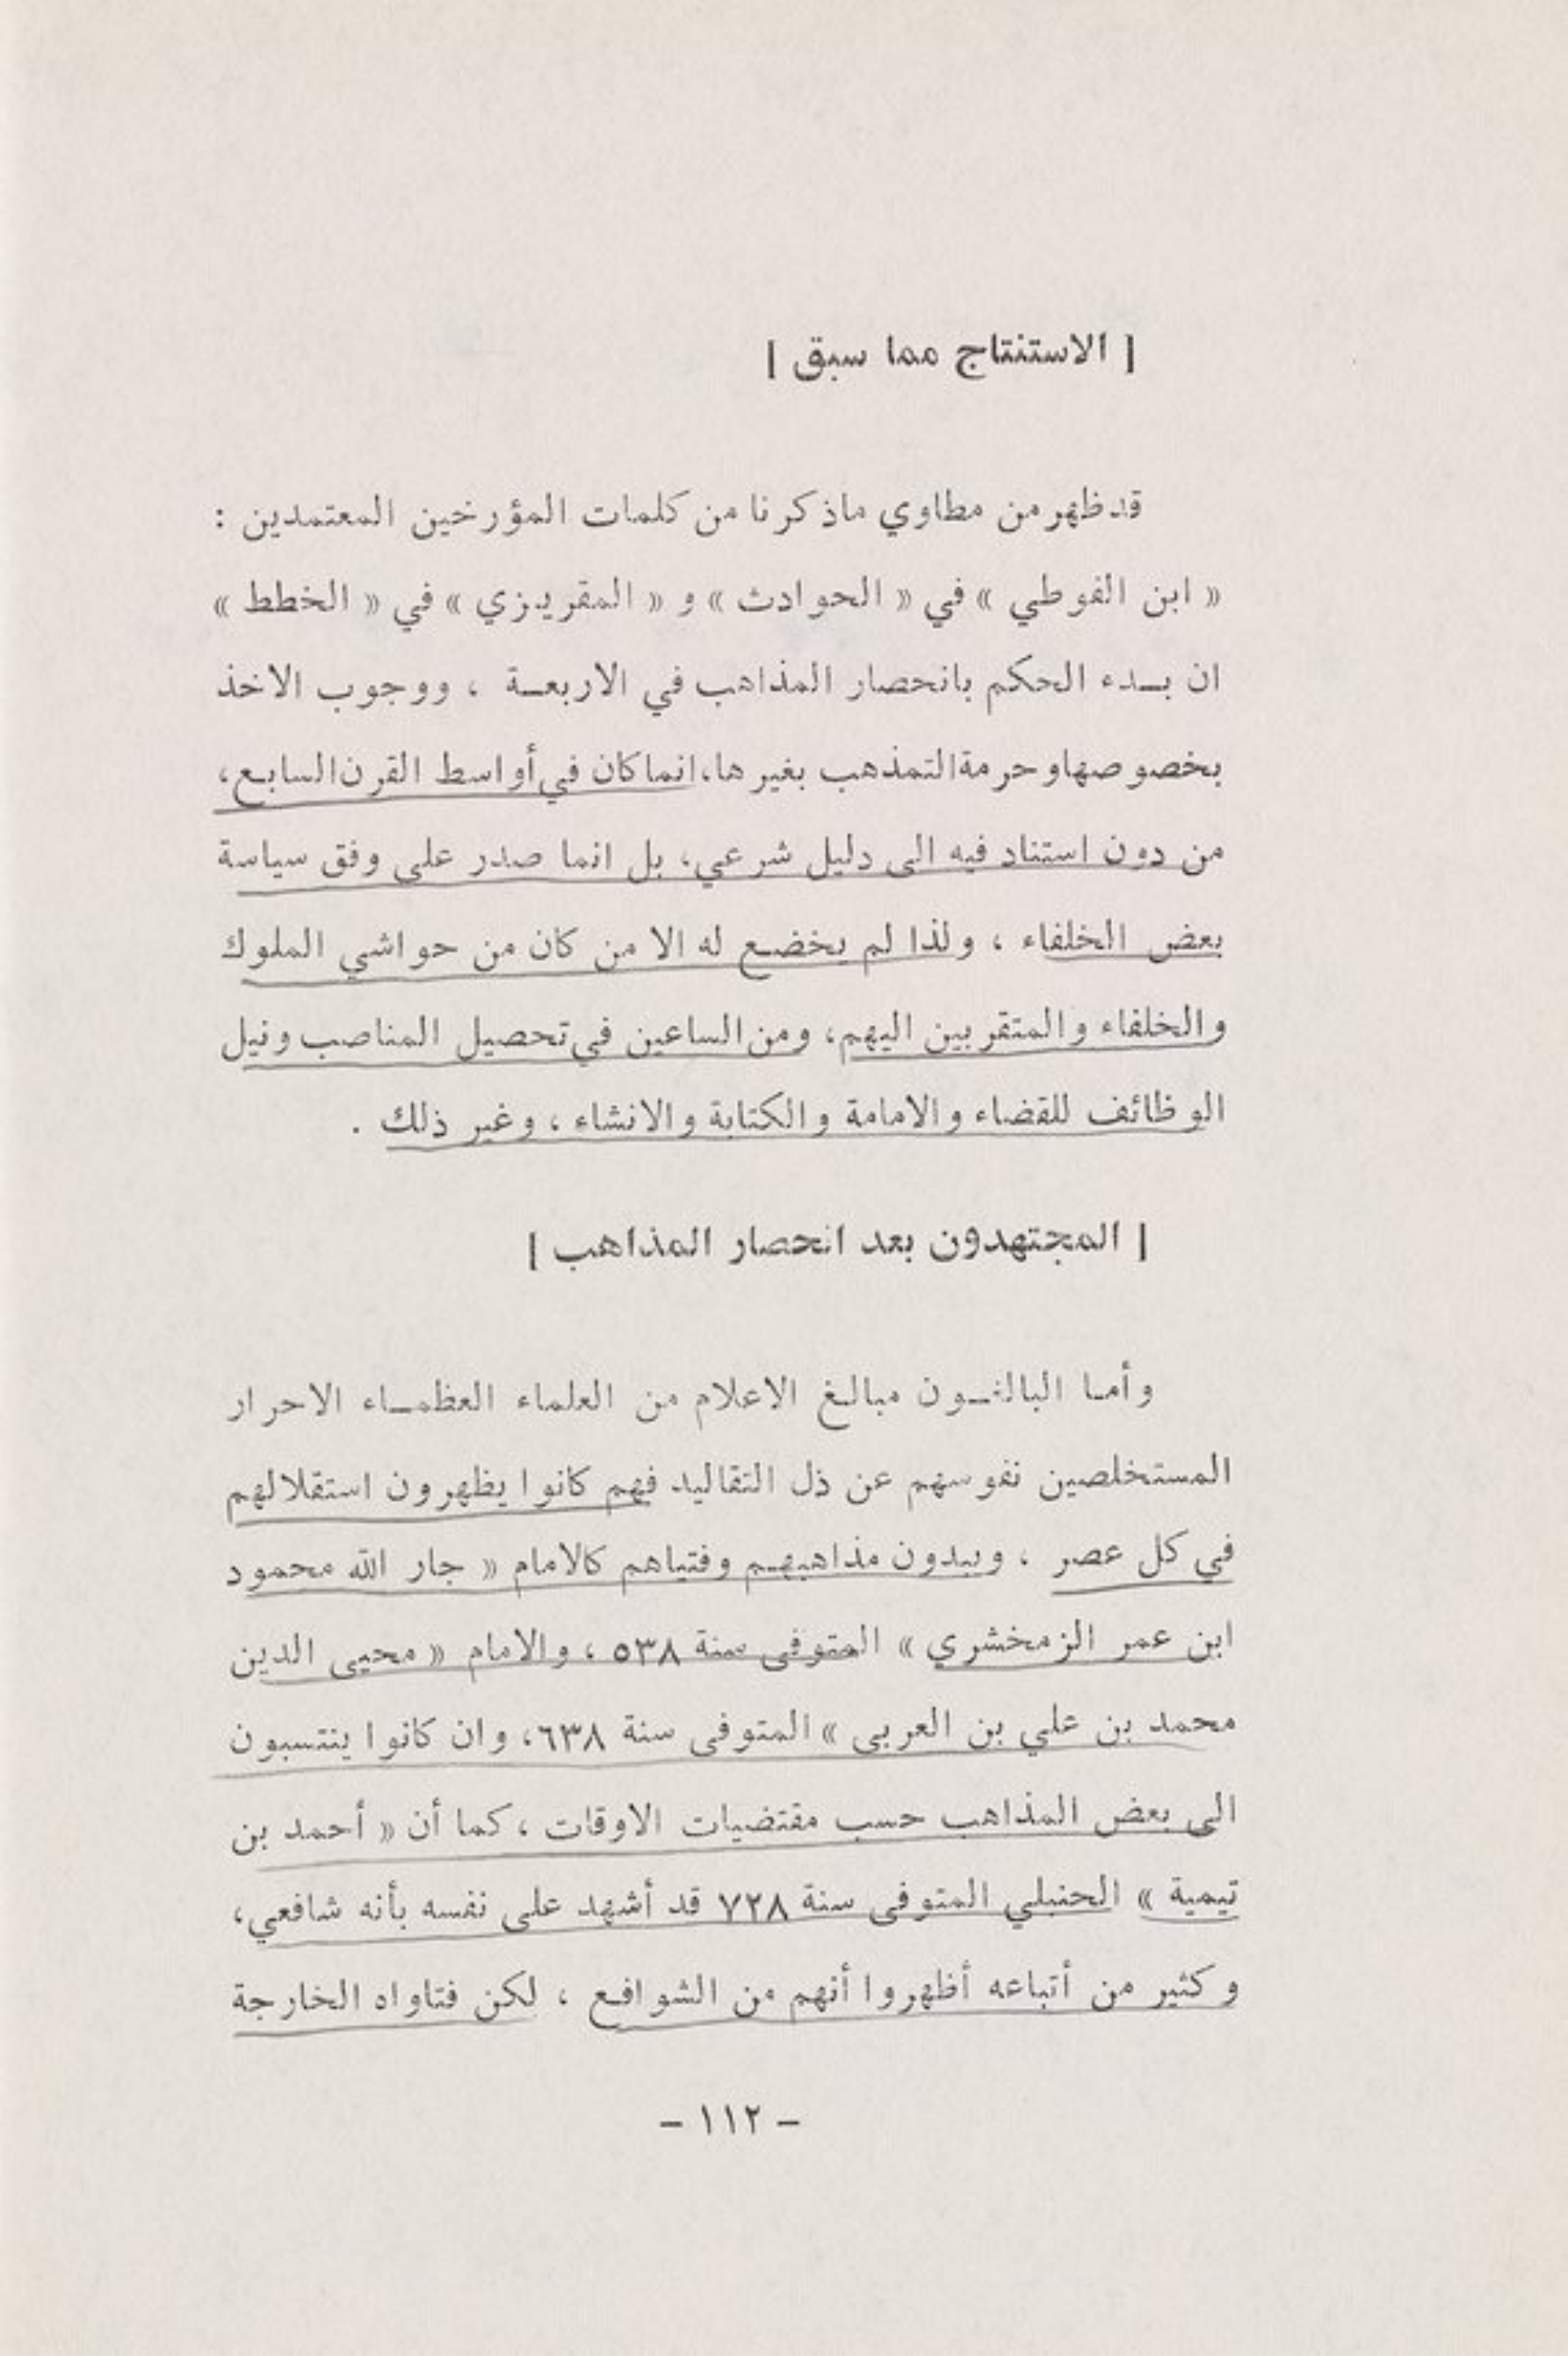 | الاستنتاج مما سبق |
قد ظهر من مطاوي ماذكرنا من كلمات المؤرخين المعتمدين :
« ابن الفوطي » في « الحوادث » و « المقريزي » في « الخطط »
ان بـدء الحكم بانحصار المذاهب في الاربعـة ، ووجوب الاخذ
بخصوصها وحرمة التمذهب بغيرها، انما كان في أواسط القرن السابع،
من دون استناد فيه الى دليل شرعي، بل انما صدر على وفق سياسة
بعض الخلفاء ، ولذا لم يخضع له الا من كان من حواشي الملوك
والخلفاء والمتقربين اليهم، ومن الساعين في تحصيل المناصب ونيل
الوظائف للقضاء والامامة والكتابة والانشاء ، وغير ذلك .
| المجتهدون بعد انحصار المذاهب |
وأمـا البالغـون مبالـغ الاعلام من العلماء العظمـاء الاحرار
المستخلصين نفوسهم عن ذل التقاليد فهم كانوا يظهرون استقلالهم
في كل عصر ، ويبدون مذاهبهـم وفتياهم كالامام « جار الله محمود
ابن عمر الزمخشري » المتوفى سنة ٥٣٨ ، والامام « محيى الدين
محمد بن علي بن العربى » المتوفى سنة ٦٣٨، وان كانوا ينتسبون
الى بعض المذاهب حسب مقتضيات الاوقات ، كما أن « أحمد بن
تيمية » الحنبلي المتوفى سنة ٧٢٨ قد أشهد على نفسه بأنه شافعي،
وكثير من أتباعه أظهروا أنهم من الشوافع ، لكن فتاواه الخارجة
– ١١٢ –